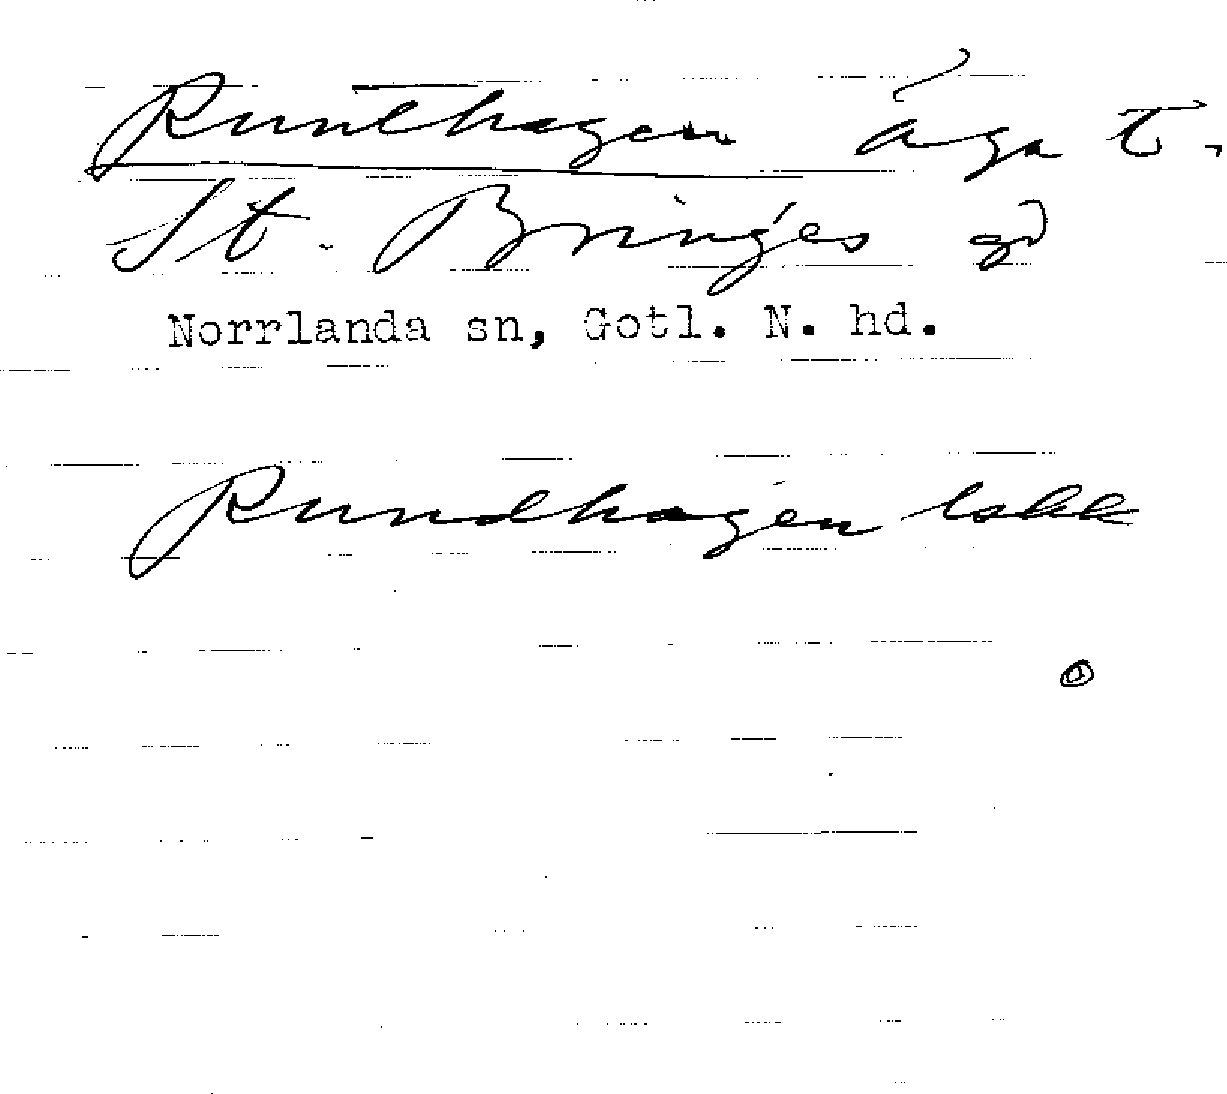 Runthagen äga t.
St. Bringes gd
Norrlanda sn, Gotl. N. hd.
Rundhagen lskk